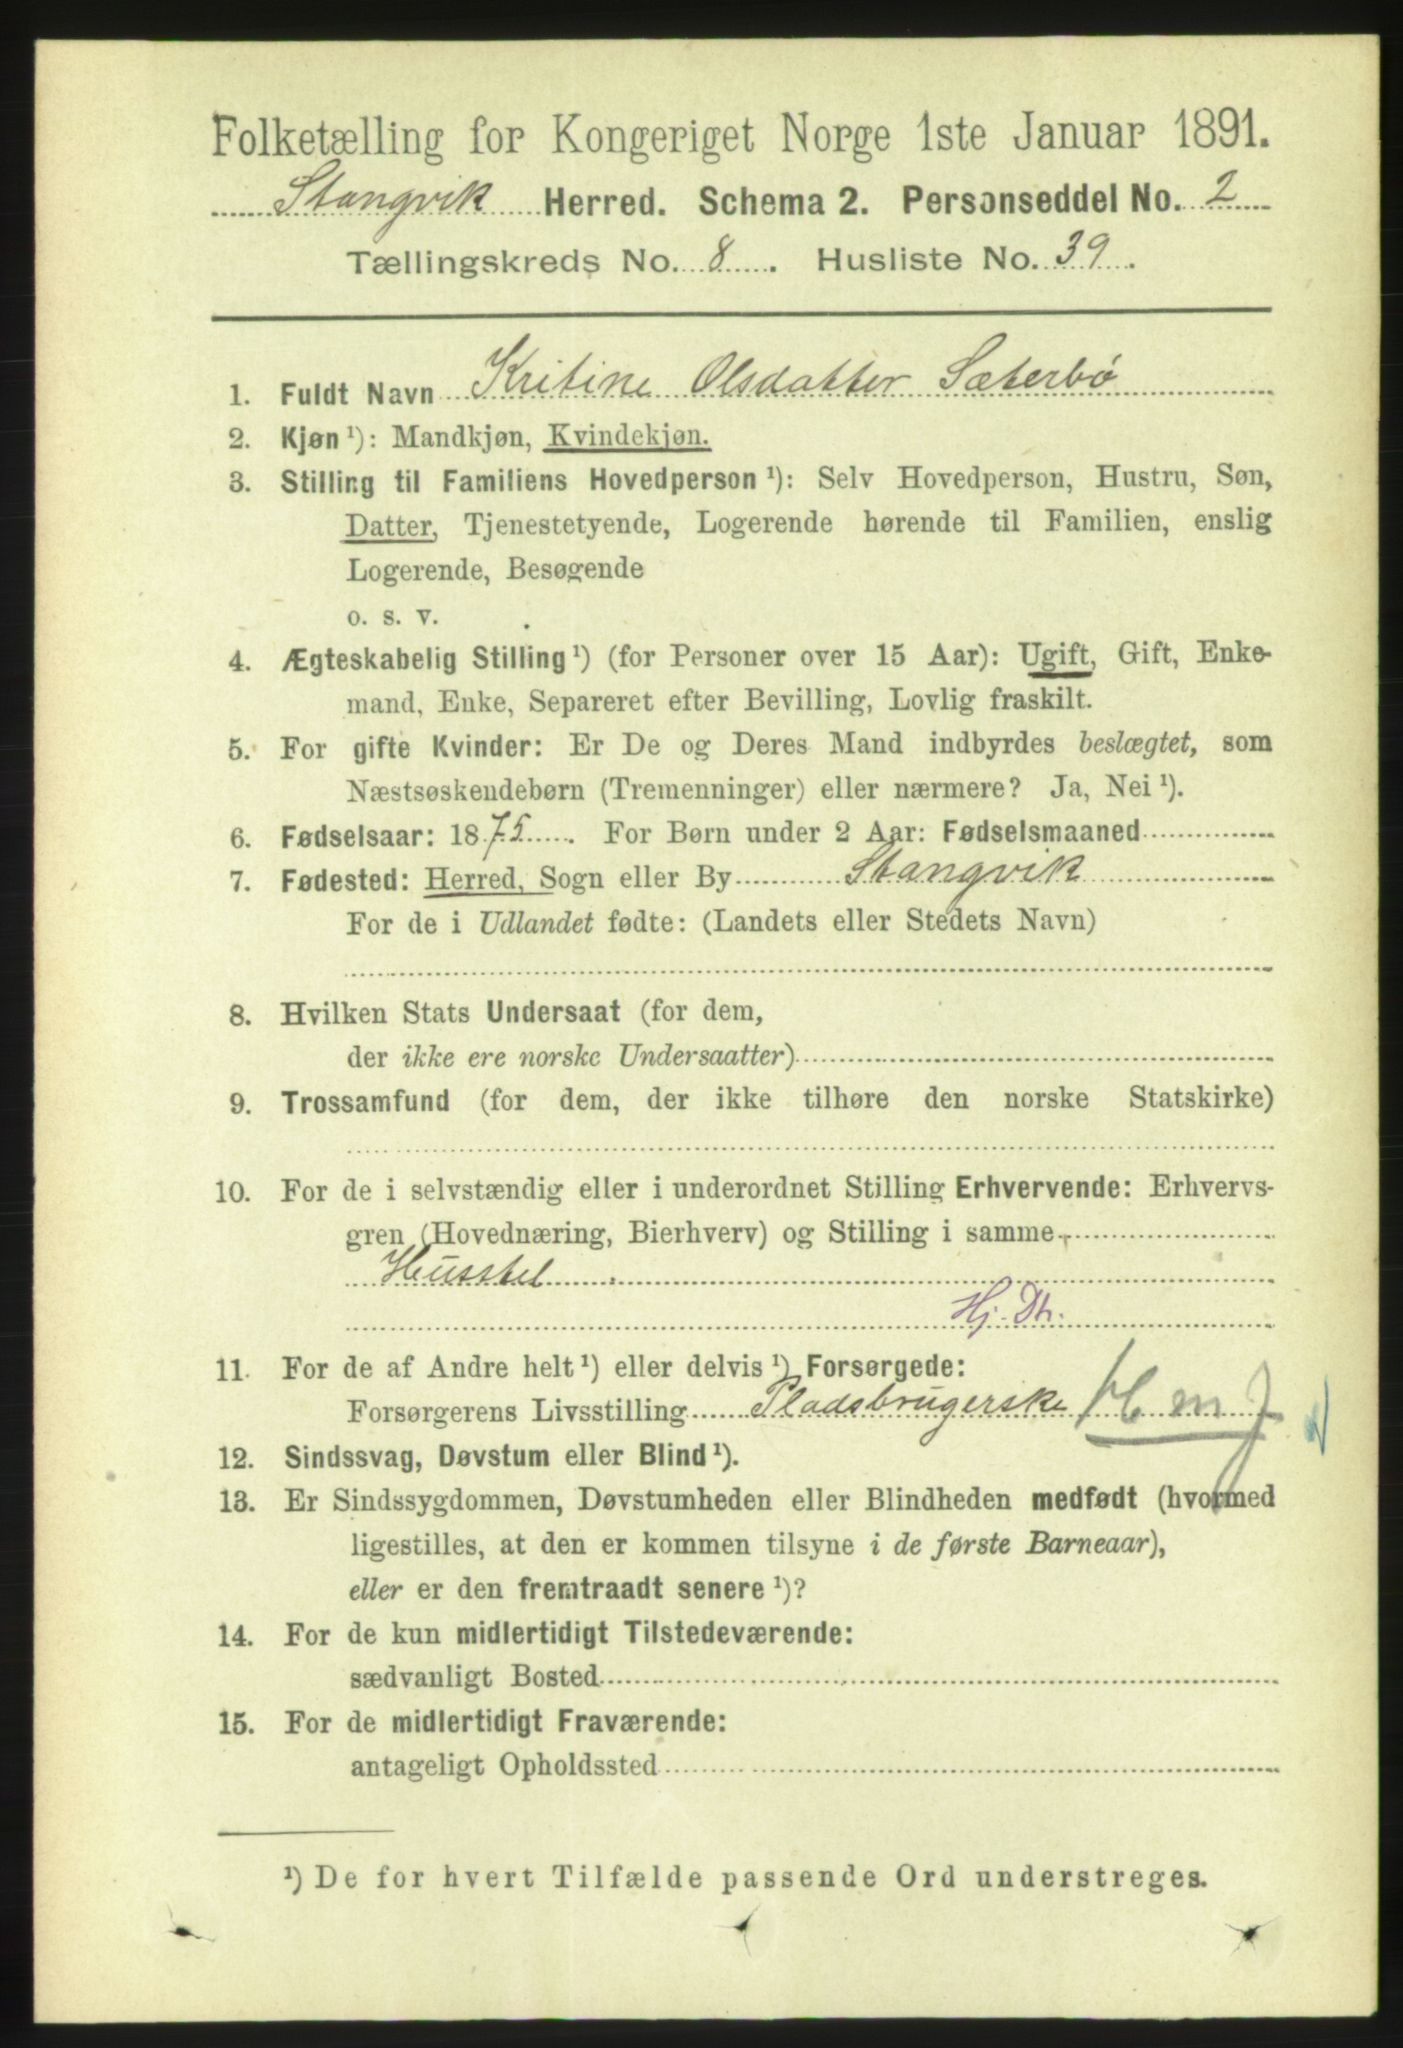 Folketælling for Kongeriget Norge 1ste Januar 1891.
Stangvik Herred. Schema 2. Personseddel No. 2
Tællingskreds No. 8. Husliste No. 39.
1. Fuldt Navn Kritine Olsdatter Sæterbø
2. Kjøn ¹): Mandkjøn, Kvindekjøn.
3. Stilling til Familiens Hovedperson ¹): Selv Hovedperson, Hustru, Søn,
Datter, Tjenestetyende, Logerende hørende til Familien, enslig
Logerende, Besøgende
o. s. v.
4. Ægteskabelig Stilling ¹) (for Personer over 15 Aar): Ugift, Gift, Enke-
mand, Enke, Separeret efter Bevilling, Lovlig fraskilt.
5. For gifte Kvinder: Er De og Deres Mand indbyrdes beslægtet, som
Næstsøskendebørn (Tremenninger) eller nærmere? Ja, Nei ¹).
6. Fødselsaar: 1875. For Børn under 2 Aar: Fødselsmaaned
7. Fødested: Herred, Sogn eller By Stangvik
For de i Udlandet fødte: (Landets eller Stedets Navn)
8. Hvilken Stats Undersaat (for dem,
der ikke ere norske Undersaatter)
9. Trossamfund (for dem, der ikke tilhøre den norske Statskirke)
10. For de i selvstændig eller i underordnet Stilling Erhvervende: Erhvervs-
gren (Hovednæring, Bierhverv) og Stilling i samme
Husstel
Hj. Dtr.
11. For de af Andre helt ¹) eller delvis ¹) Forsørgede:
Forsørgerens Livsstilling Pladsbrugerske
12. Sindssvag, Døvstum eller Blind ¹).
13. Er Sindssygdommen, Døvstumheden eller Blindheden medfødt (hvormed
ligestilles, at den er kommen tilsyne i de første Barneaar),
eller er den fremtraadt senere ¹)?
14. For de kun midlertidigt Tilstedeværende:
sædvanligt Bosted
15. For de midlertidigt Fraværende:
antageligt Opholdssted
¹) De for hvert Tilfælde passende Ord understreges.